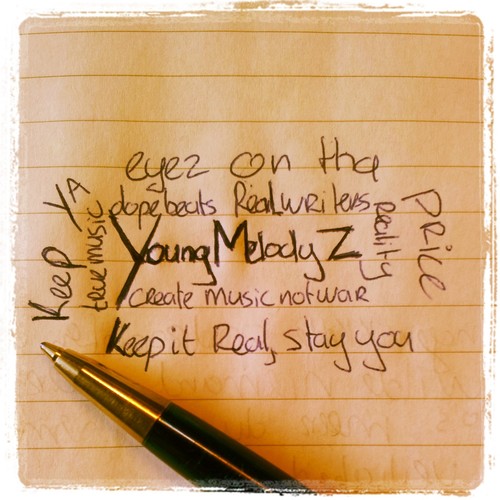 Keep YA
eyez on tha
Price
true music
dopebeats Real writers
Reality
Young Melody Z
create music not war
Keep it Real, stay you